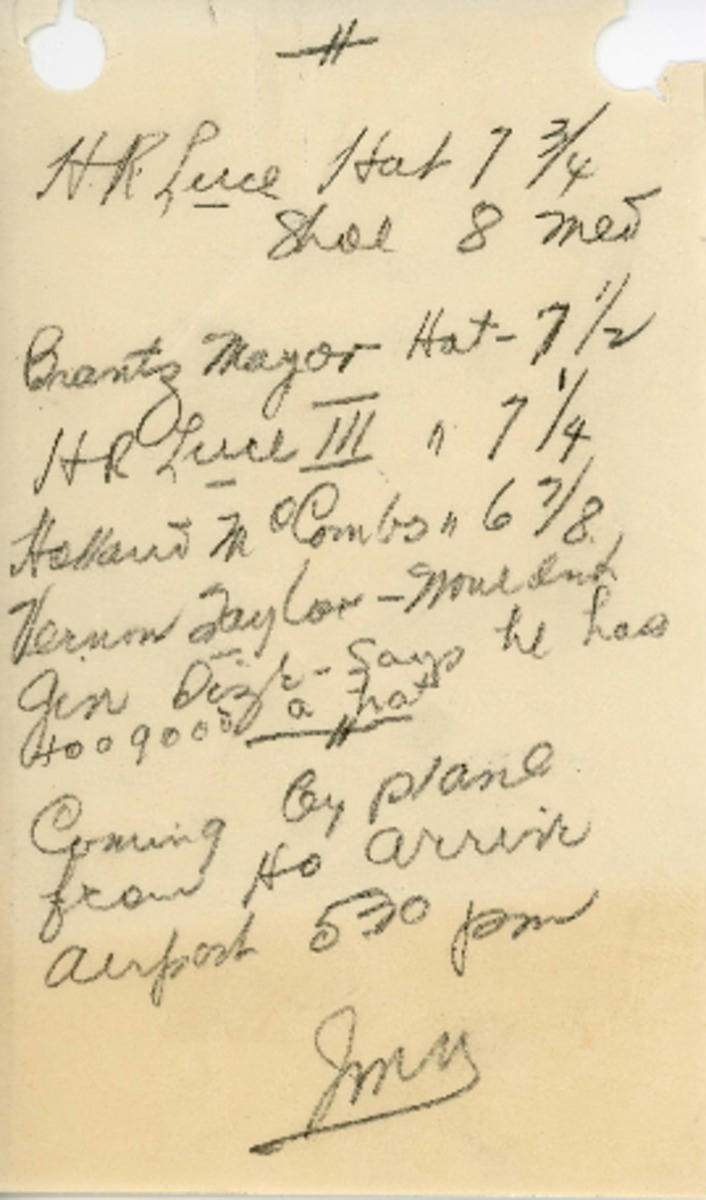 H.R. Luce Hat 7 3/4
Shoe 8 Med
Brantz Mayor Hat - 7 1/2
H R Luce III " 7 1/4
Holland McCombs " 6 7/8
Vernon Taylor - Wouldnt
give size - Says he has
a good a hat
Coming by plane
from Ho arrive
airport 530 pm